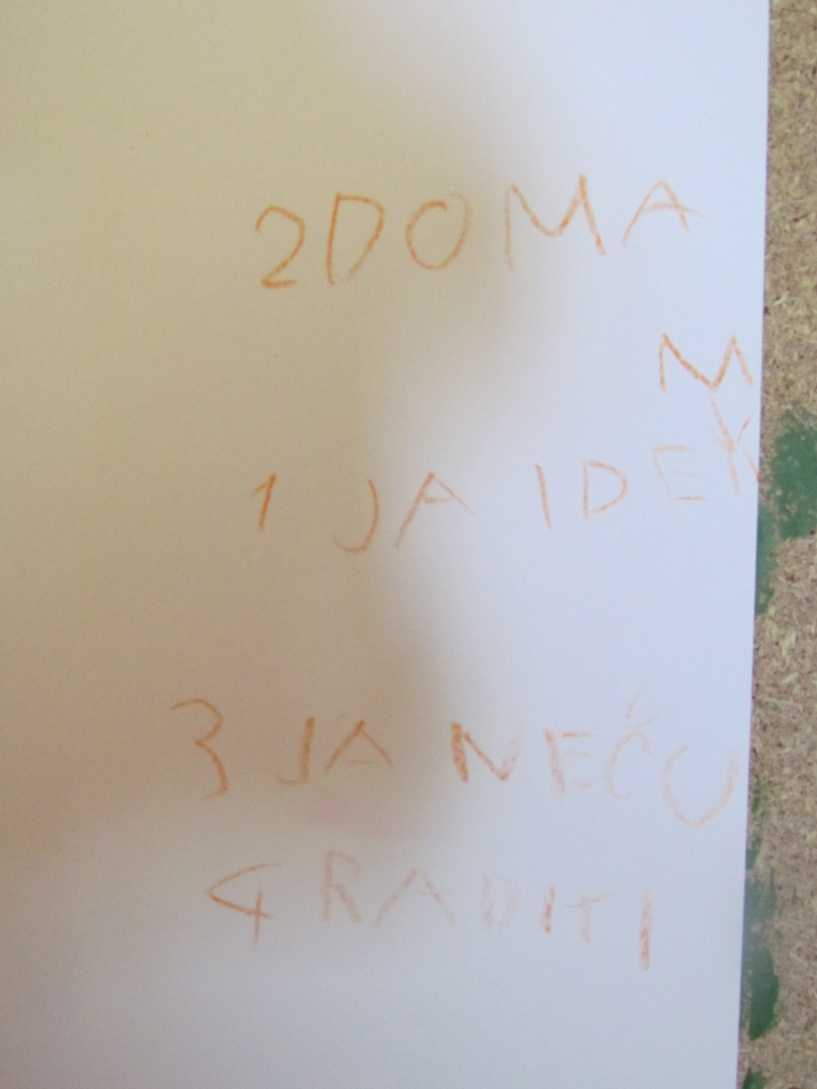 2 DOMA
M
K
1 JA IDE
3 JA NEĆU
4 RADITI